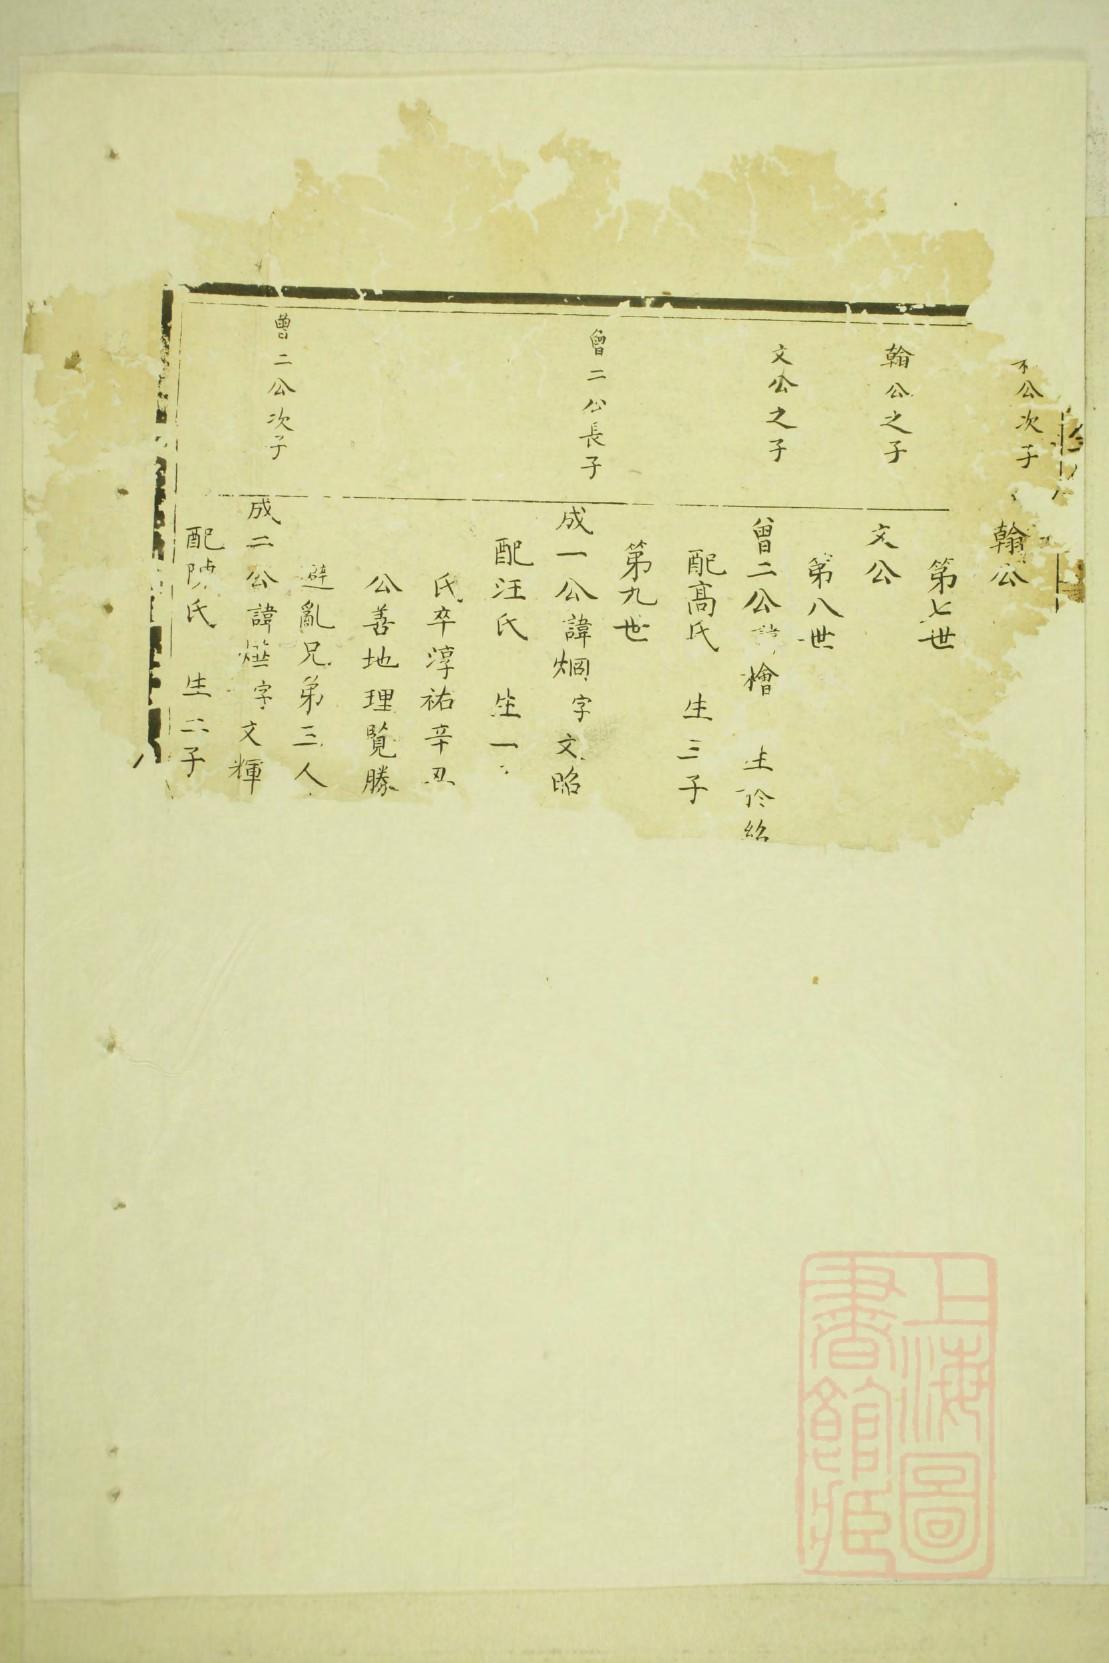 公次子
翰公
第七世
翰公之子
文公
第八世
文公之子
曾二公諱檜 生於
配高氏 生三子
第九世
曾二公長子
成一公諱烟字文昭
配汪氏 生一
氏卒淳祐辛丑
公善地理覽勝
避亂兄弟三人
曾二公次子
成二公諱字文輝
配陳氏 生二子
上海圖
書館藏